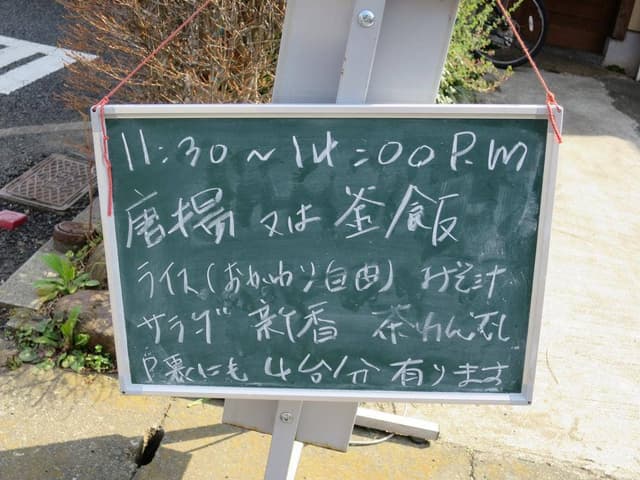 11:30~14:00 P.M
唐揚 又は 釜飯
ライス(おかわり自由) みそ汁
サラダ 新香 茶わんむし
P裏にも 4台分 有ります